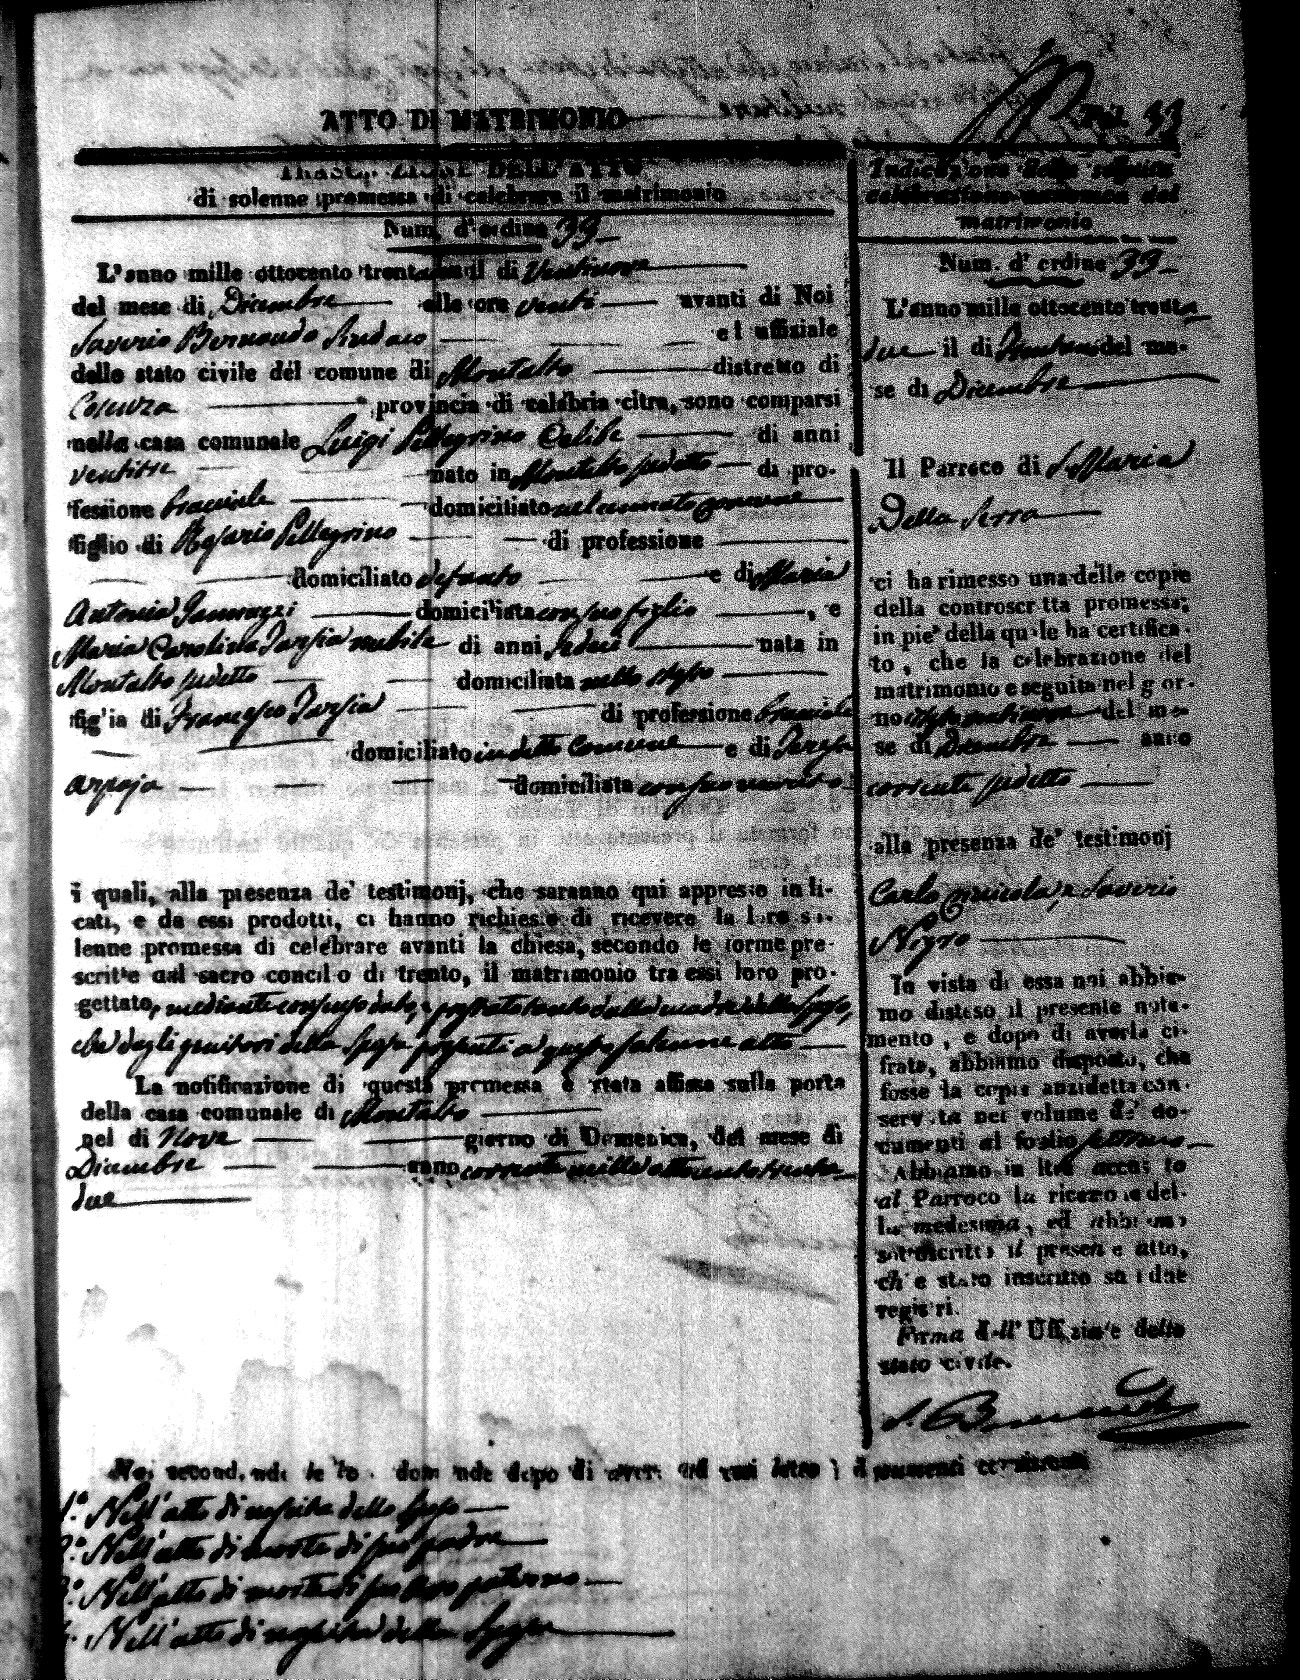 ATTO DI MATRIMONIO
DELL'ATTO
di solenne promessa di celebrare il matrimonio
Num. d'ordine 39
L'anno mille ottocento il di Ventinove
del mese di Dicembre alle ore venti avanti di Noi
Saverio Bernaudo Sindaco ed uffiziale
dello stato civile del comune di Montalto distretto di
Cosenza provincia di calabria citra, sono comparsi
nella casa comunale Luigi Pellegrino Celibe di anni
ventitre nato in Montalto di pro-
fessione bracciale domiciliato nel
figlio di Rosario Pellegrino di professione
domiciliato defunto e di Maria
Antonia domiciliata con suo figlio , e
Maria Carolina Tarsia nubile di anni sedici nata in
Montalto domiciliata nello stesso
figlia di Francesco Tarsia di professione bracciale
domiciliato in detto Comune e di Teresa
domiciliata con suo marito
i quali, alla presenza de' testimonj, che saranno qui appresso indi-
cati, e da essi prodotti, ci hanno richiesto di ricevere la loro so-
lenne promessa di celebrare avanti la chiesa, secondo le forme pre-
scritte dal sacro concilio di trento, il matrimonio tra essi loro pro-
gettato, dalla madre dello sposo,
che dagli genitori della sposa presenti a questo solenne atto
La notificazione di questa promessa è stata affissa sulla porta
della casa comunale di Montalto
nel di Nove giorno di Domenica, del mese di
Dicembre anno corrente mille ottocento trenta
due
Noi secondando le domande dopo di aver
1.° Nell'atto di nascita dello sposo
2.° Nell'atto di morte di suo padre
3.° Nell'atto di morte di suo avo paterno
4. Nell'atto di nascita della sposa
Indicazione della seguita
celebrazione del
matrimonio
Num. d'ordine 39
L'anno mille ottocento trenta
due il di del me-
se di Dicembre
Il Parroco di S. Maria
Della Serra
ci ha rimesso una delle copie
della controscritta promessa;
in piè della quale ha certifica-
to, che la celebrazione del
matrimonio è seguita nel gior-
no del me-
se di Dicembre anno
corrente
alla presenza de' testimonj
Carlo e Saverio
Nigro
In vista di essa noi abbia-
mo disteso il presente nota-
mento, e dopo di averla ci-
frata, abbiamo disposto, che
fosse la copia anzidetta con-
servata nel volume de' do-
cumenti al foglio
Abbiamo in
al Parroco la ricezione del-
la medesima, ed abbiamo
sottoscritto il presente atto,
ch'è stato inscritto su i due
registri.
Firma dell'Uffiziale dello
stato civile.
S. Bernaudo